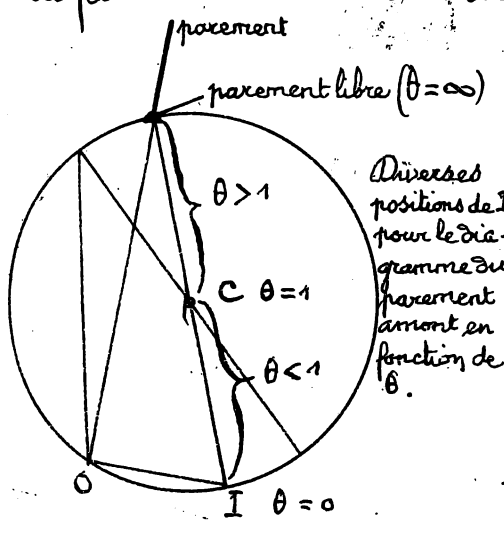 parement
parement libre (θ=∞)
θ>1
Diverses
positions de I
pour le dia-
gramme du
parement
amont en
fonction de
θ.
C θ=1
θ<1
O
I θ=0